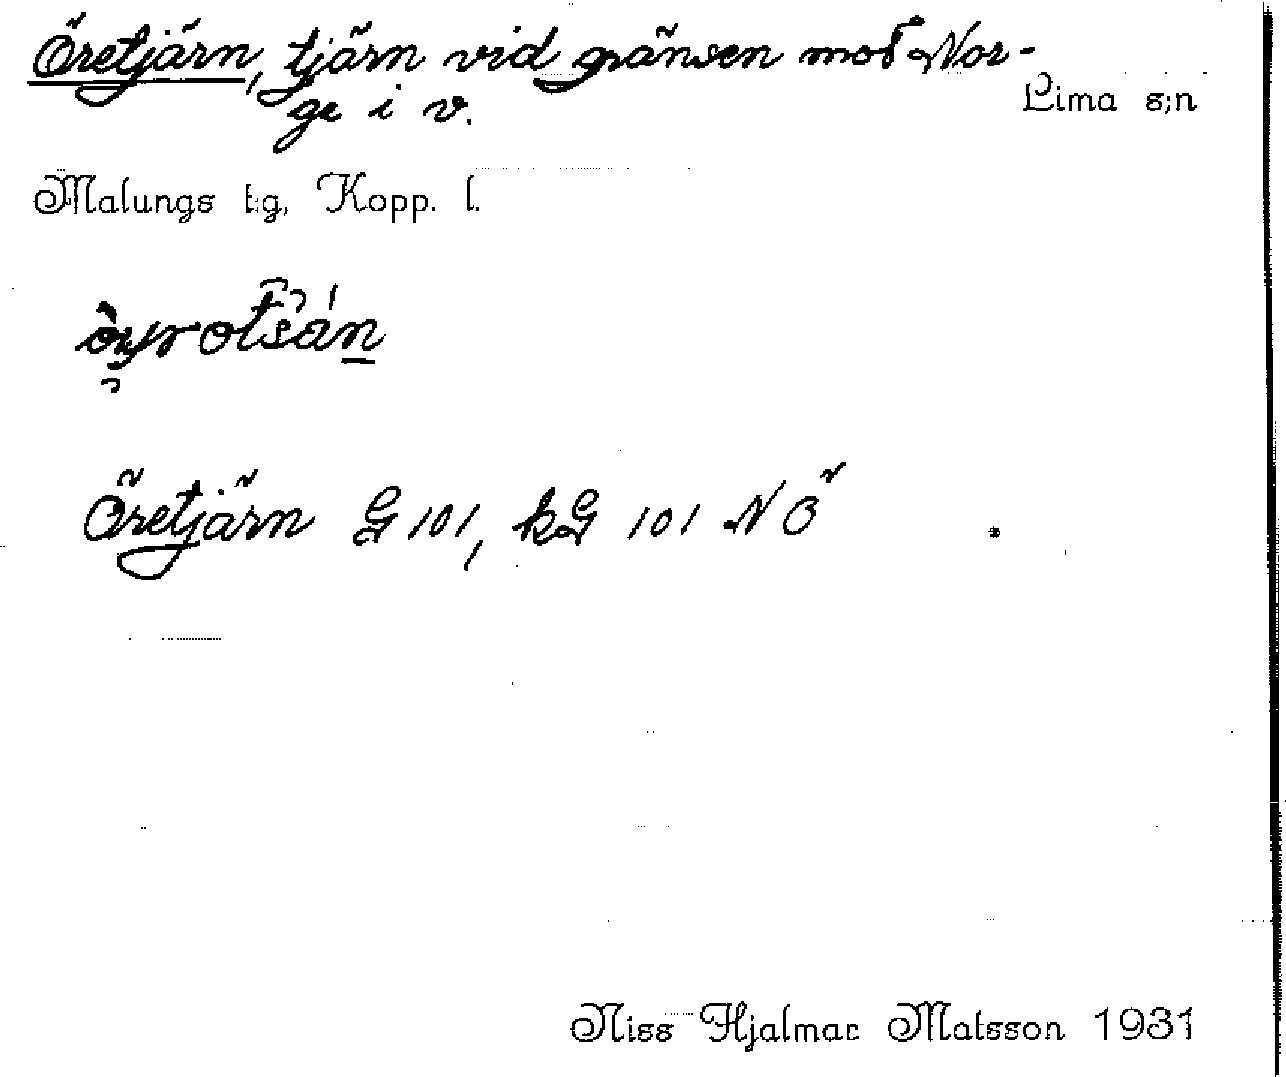 Öretjärn, tjärn vid gränsen mot Nor-
ge i v.
Lima s:n
Malungs t:g, Kopp. l.
Öretjärn G 101, kG 101 NÖ
Niss Hjalmar Matsson 1931